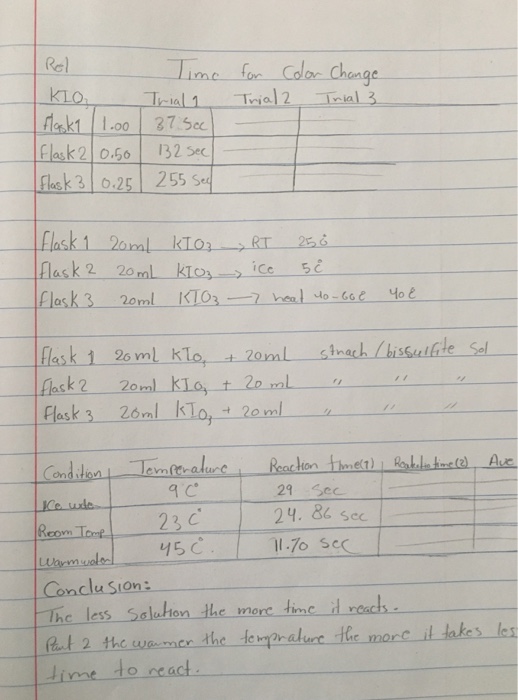 Rel Time for Color Change
KIO3 Trial 1 Trial 2 Trial 3
flask1 1.00 37 Sec
flask 2 0.50 132 Sec
flask 3 0.25 255 Sec
flask 1 20ml KIO3 → RT 25°C
flask 2 20mL KIO3 → ice 5°C
flask 3 20ml KIO3 → heat 40-60C 40C
flask 1 20ml KIO3 + 20ml strach / bissulfite Sol
flask 2 20ml KIO3 + 20 ml " " "
flask 3 20ml KIO3 + 20ml " " "
Condition Temperature Reaction time(1) time(2) Ave
Ice wate 9C° 29 Sec
Room Temp 23 C° 24.86 sec
Warm water 45 C°. 11.70 Sec
Conclusion:
The less Solution the more time it reacts.
Part 2 the warmer the temprature the more it takes les
time to react.